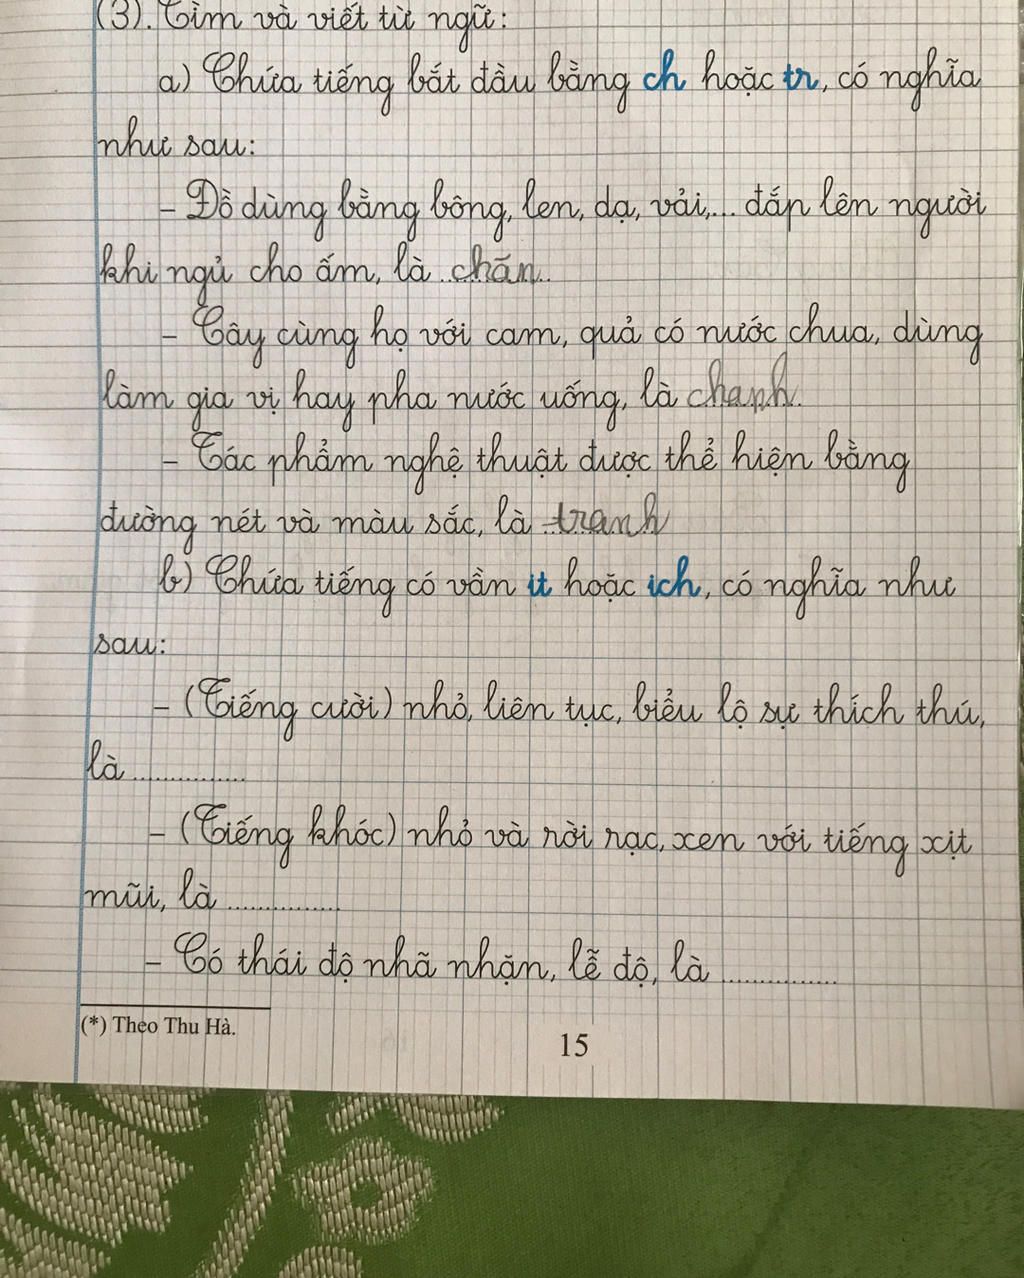 (3). Tìm và viết từ ngữ:
a) Chứa tiếng bắt đầu bằng ch hoặc tr, có nghĩa
như sau:
– Đồ dùng bằng bông, len, dạ, vải,... đắp lên người
khi ngủ cho ấm, là ..chăn..
– Cây cùng họ với cam, quả có nước chua, dùng
làm gia vị hay pha nước uống, là chanh.
– Tác phẩm nghệ thuật được thể hiện bằng
đường nét và màu sắc, là ..tranh
b) Chứa tiếng có vần it hoặc ich, có nghĩa như
sau:
– (Tiếng cười) nhỏ, liên tục, biểu lộ sự thích thú,
là ...............
– (Tiếng khóc) nhỏ và rời rạc, xen với tiếng xịt
mũi, là ...............
– Có thái độ nhã nhặn, lễ độ, là ...............
(*) Theo Thu Hà.
15